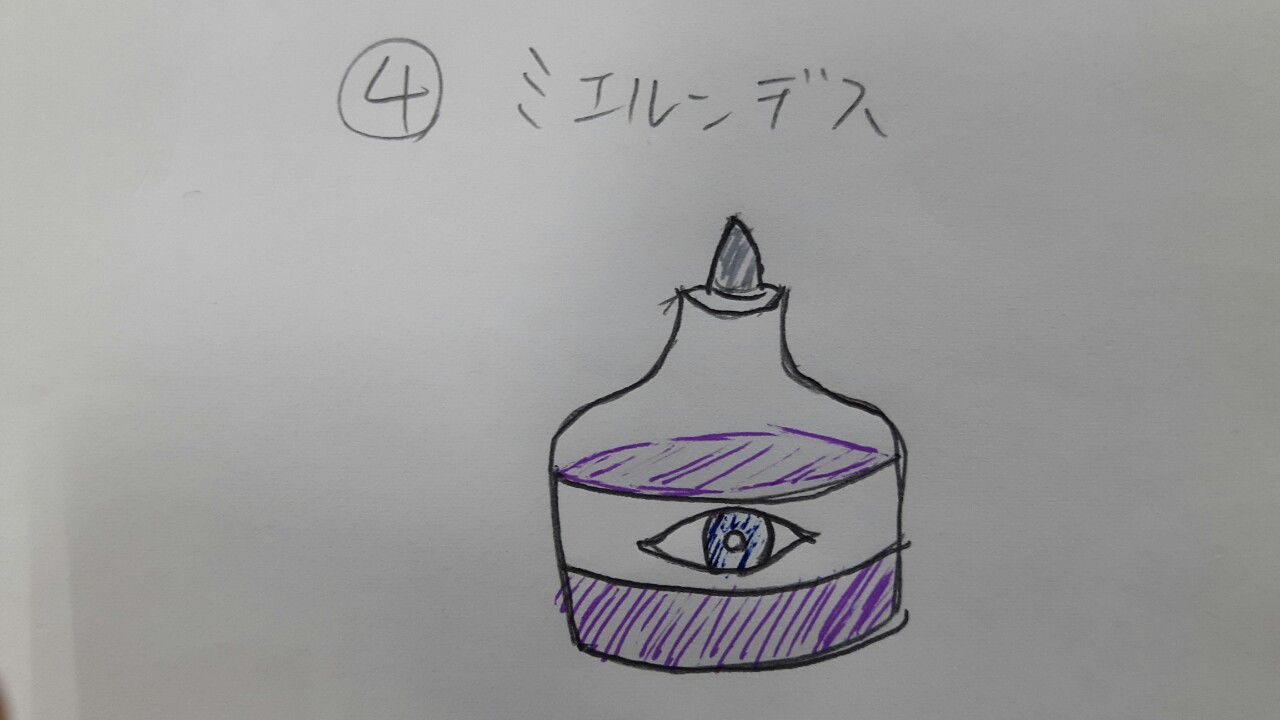 ④ ミエルンデス